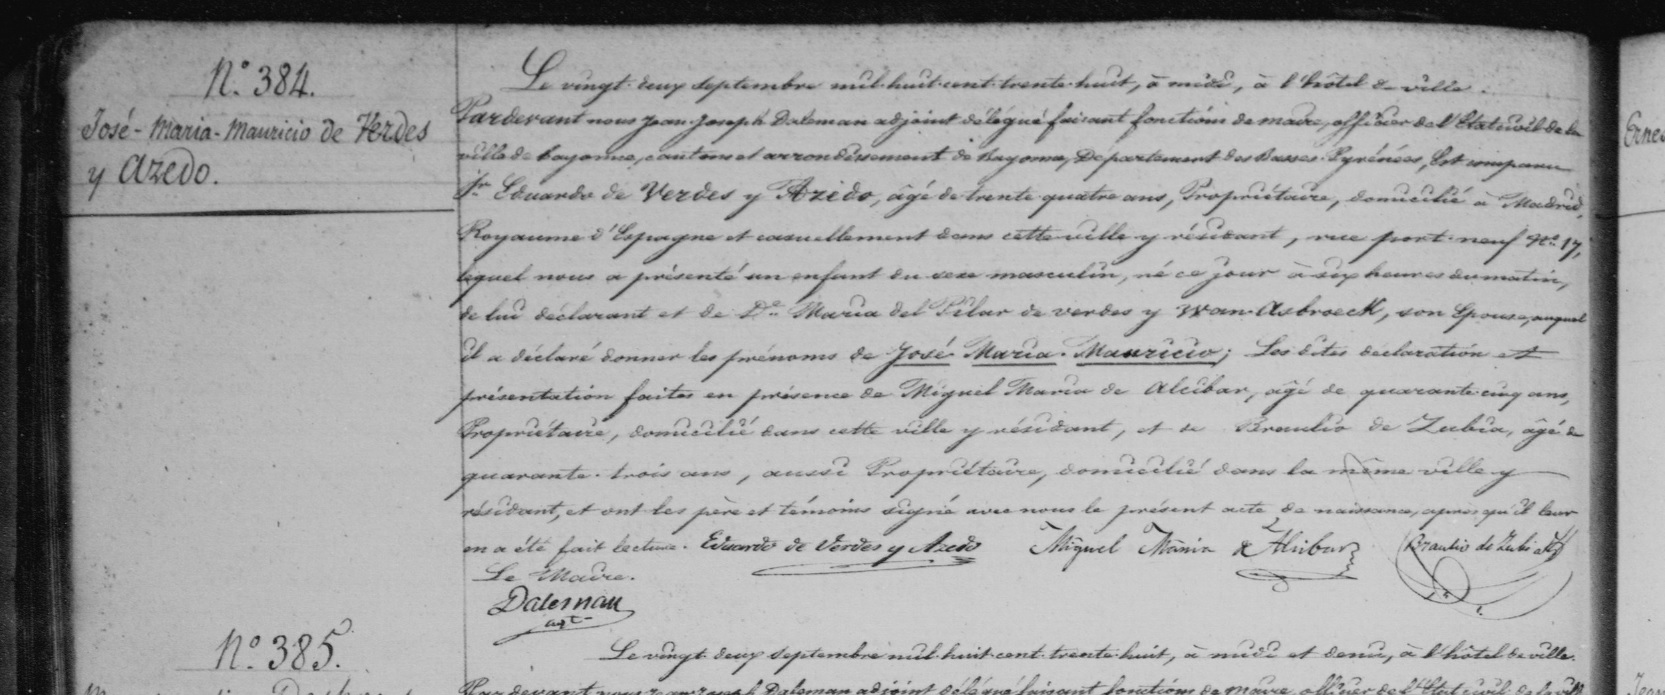 N.° 384.
José-Maria-Mauricio de Verdes
y Azedo.
Le vingt-deux septembre mil-huit-cent-trente-huit, à midi, à l'hôtel de ville.
Pardevant nous Jean-Joseph Daleman adjoint délégué faisant fonctions de maire, officier de l'Etat civil de la
ville de bayonne, cantons et arrondissement de Bayonne, Département des Basses-Pyrénées, Est comparu
Sr Eduardo de Verdes y Azedo, âgé de trente-quatre ans, Propriétaire, domicilié à Madrid,
Royaume d'Espagne et casuellement dans cette ville y résidant, rue port-neuf N° 17,
lequel nous a présenté un enfant du sexe masculin, né ce jour à six heures du matin,
de lui déclarant et de De Maria del Pilar de verdes y Wan-Asbroeck, son Epouse, auquel
il a déclaré donner les prénoms de José-Maria-Mauricio; Les dites déclaration et
présentation faites en présence de Miguel Maria de Alcibar, âgé de quarante-cinq ans,
Propriétaire, domicilié dans cette ville y résidant, et de Braulio de Zubia, âgé de
quarante-trois ans, aussi Propriétaire, domicilié dans la même ville y
résidant, et ont les père et témoins signé avec nous le présent acte de naissance, après qu'il leur
en a été fait lecture. Eduardo de Verdes y Azedo Miguel Maria de Alcibar Braulio de Zubia
Le Maire.
Daleman
adt
N.° 385.
Le vingt-deux septembre mil-huit-cent-trente-huit, à midi et demi, à l'hôtel de ville.
Par devant nous Jean-Joseph Daleman adjoint délégué faisant fonctions de maire, officier de l'Etat civil de la ville